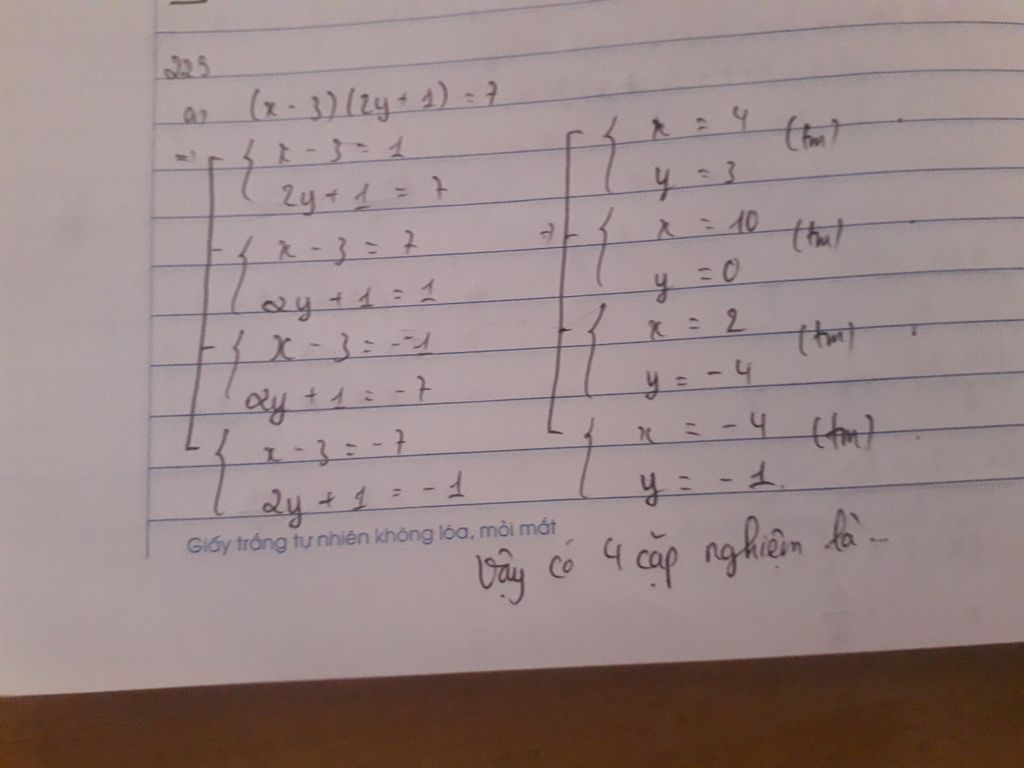 223
a, (x - 3)(2y + 1) = 7
=> [ { x - 3 = 1
2y + 1 = 7
{ x - 3 = 7
2y + 1 = 1
{ x - 3 = -1
2y + 1 = -7
{ x - 3 = -7
2y + 1 = -1
=> [ { x = 4 (tm)
y = 3
{ x = 10 (tm)
y = 0
{ x = 2 (tm)
y = -4
{ x = -4 (tm)
y = -1.
Giấy trắng tự nhiên không lóa, mỏi mắt
Vậy có 4 cặp nghiệm là -